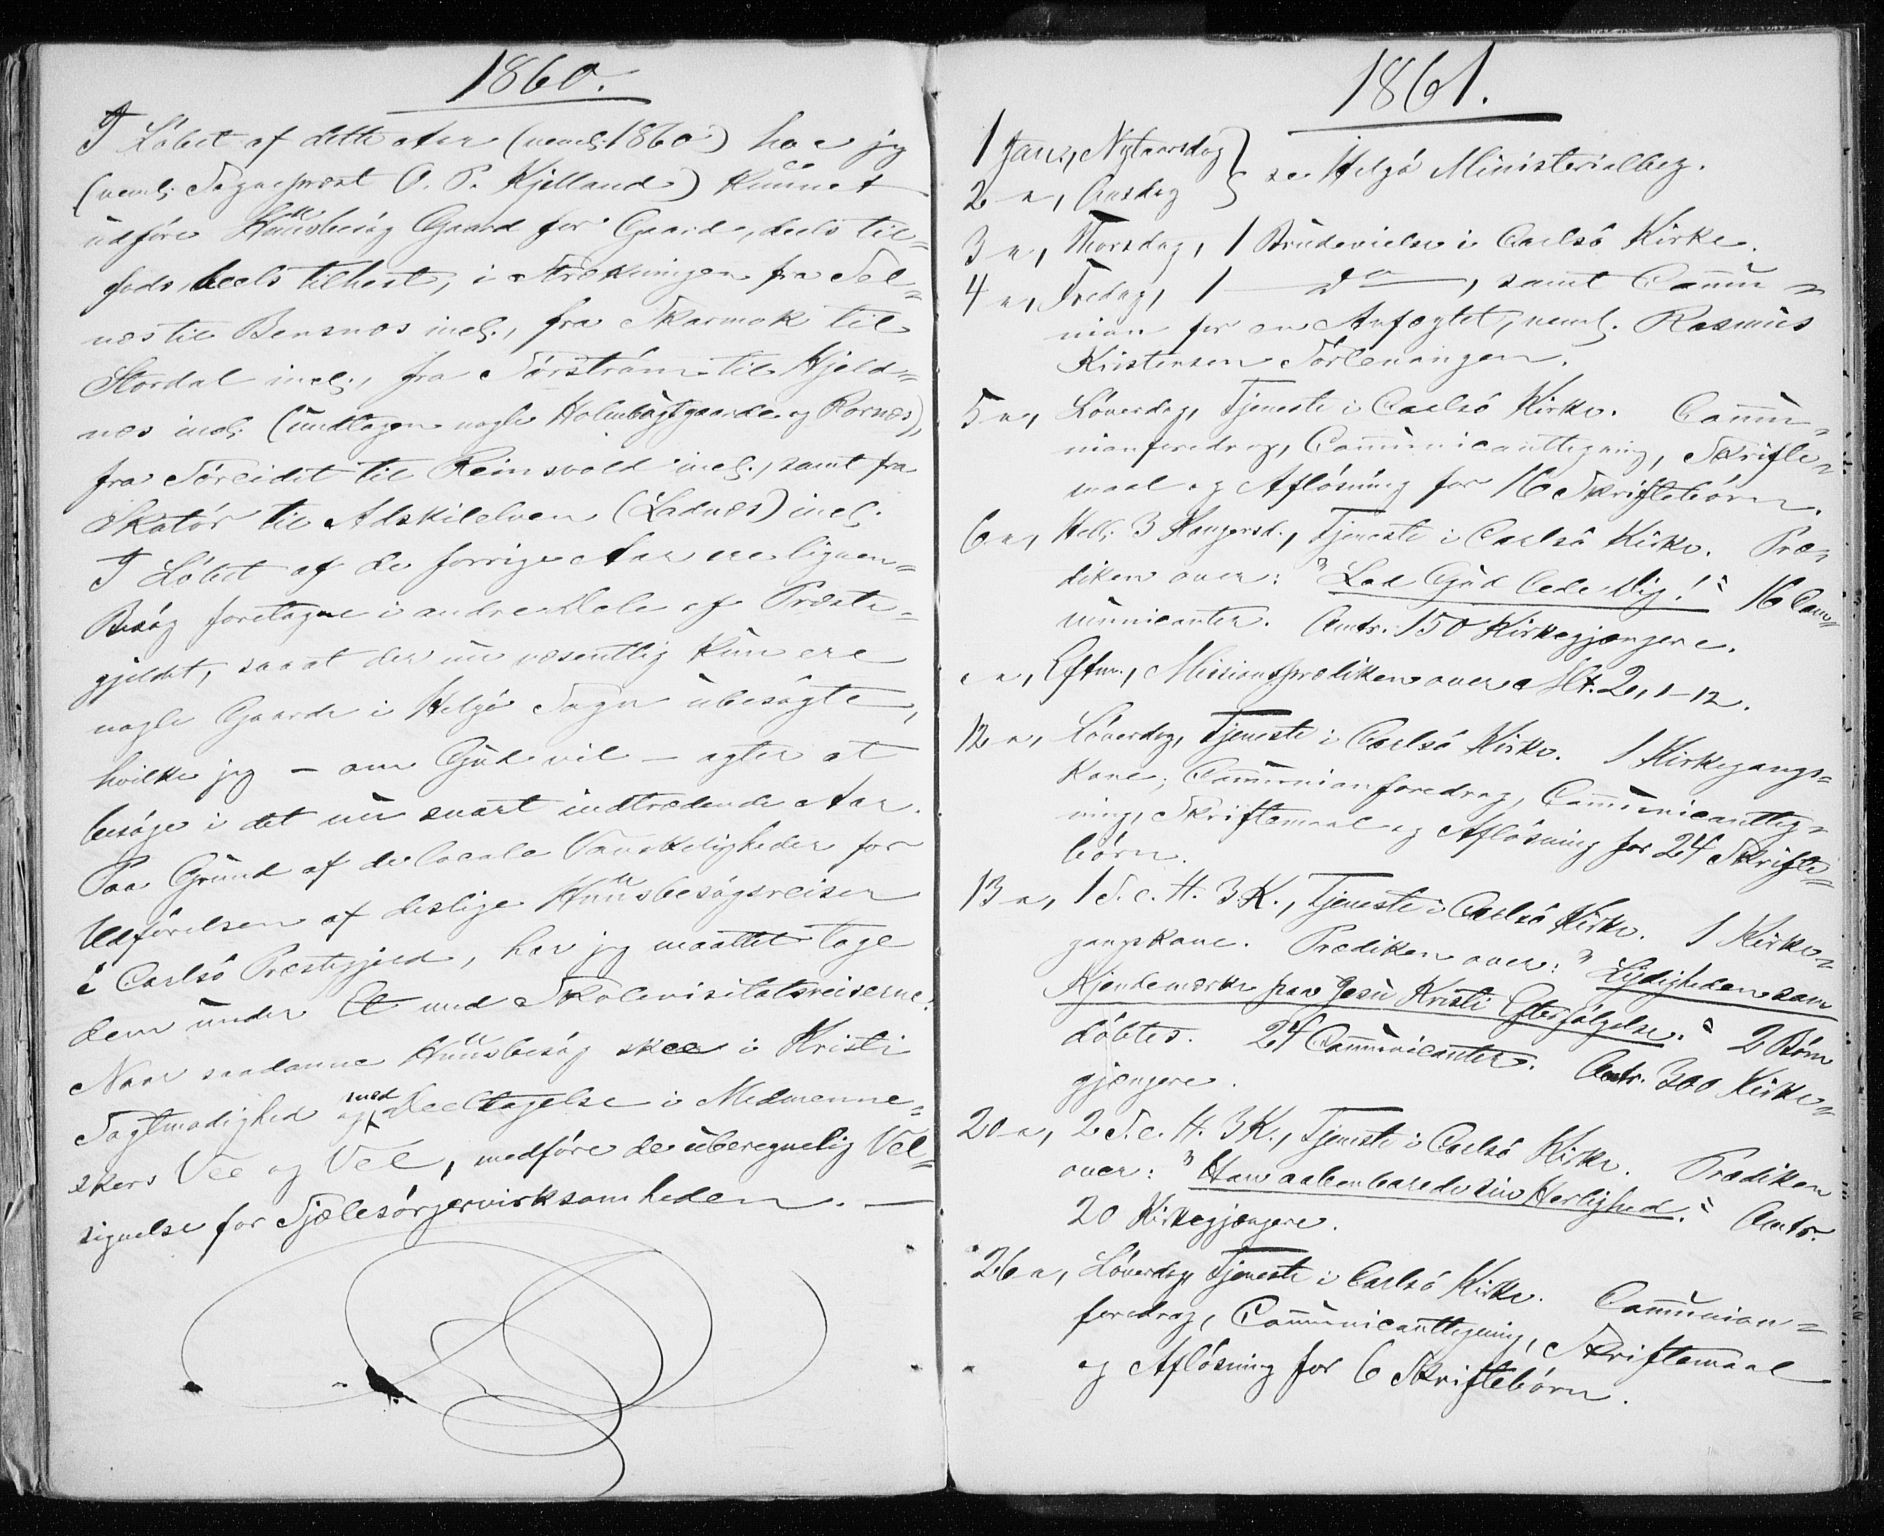 1860.
I Løbet af dette Aar (neml. 1860) har jeg
(neml. Sognepræst O. P. Kjelland) kunnet
udføre Huusbesøg Gaard for Gaard, deels til-
fods, deels tilhest, i Strækningen fra Sel-
næs til Bensnæs incl., fra Skarmok til
Stordal incl., fra Sørstrøm til Hjeld-
næs incl. (undtagen nogle Holmbugtgaarde og Rornæs),
fra Søreidet til Reinsvold incl., samt fra
Skatør til Adskilelven (Ladnæs) incl.
I Løbet af de forrige Aar ere lignen-
Besøg foretagne i andre Dele af Præste-
gjeldet, saaat der nu væsentlig kun ere
nogle Gaarde i Helgø Sogn ubesøgte,
hvilke jeg – om Gud vil – agter at
besøge i det nu snart indtrædende Aar.
Paa Grund af de locale Vanskeligheder for
Udførelsen af deslige Huusbesøgsreiser
i Carlsø Præstegjeld, har jeg maattet tage
dem under Et med Skolevisitatsreiserne.
Naar saadanne Huusbesøg skee i Kristi
Sagtmodighed og med Deeltagelse i Medmenne-
skers Vee og Vel, medføre de uberegnelig Vel-
signelse for Sjælesørgervirksomheden. —
1861.
1 Janr, Nytaarsdag } se Helgø Ministerialbog.
2 n, Onsdag
3 n, Thorsdag, 1 Brudevielse i Carlsø Kirke.
4 n, Fredag, 1 — do —, samt Commu-
nion for en Anfægtet, neml. Rasmus
Kristensen Sørlenangen.
5 n, Løverdag, Tjeneste i Carlsø Kirke. Commu-
nionforedrag, Communicanttegning, Skrifte-
maal og Afløsning for 16 Skriftebørn.
6 n, Hell. 3 Kongersd., Tjeneste i Carlsø Kirke. Præ-
diken over: "Lad Gud lede Dig!" 16 Com-
municanter. Omtr. 150 Kirkegjængere.
s n, Eftm., Missionsprædiken over Mt. 2, 1–12.
12 n, Løverdag, Tjeneste i Carlsø Kirke. 1 Kirkegangs-
kone; Communionforedrag, Communicantteg-
ning, Skriftemaal og Afløsning for 24 Skrifte-
børn.
13 n, 1 S. e. H. 3 K., Tjeneste i Carlsø Kirke. 1 Kirke-
gangskone. Prædiken over: "Lydigheden som
Kjendemærke paa Jesu Kristi Efterfølgelse." 2 Børn
døbtes. 24 Communicanter. Omtr. 300 Kirke-
gjængere.
20 n, 2 S. e. H. 3 K., Tjeneste i Carlsø Kirke. Prædiken
over: "Han aabenbarede sin Herlighed." Omtr.
20 Kirkegjængere.
26 n, Løverdag, Tjeneste i Carlsø Kirke. Communion-
foredrag, Communicanttegning, Skriftemaal
og Afløsning for 6 Skriftebørn.